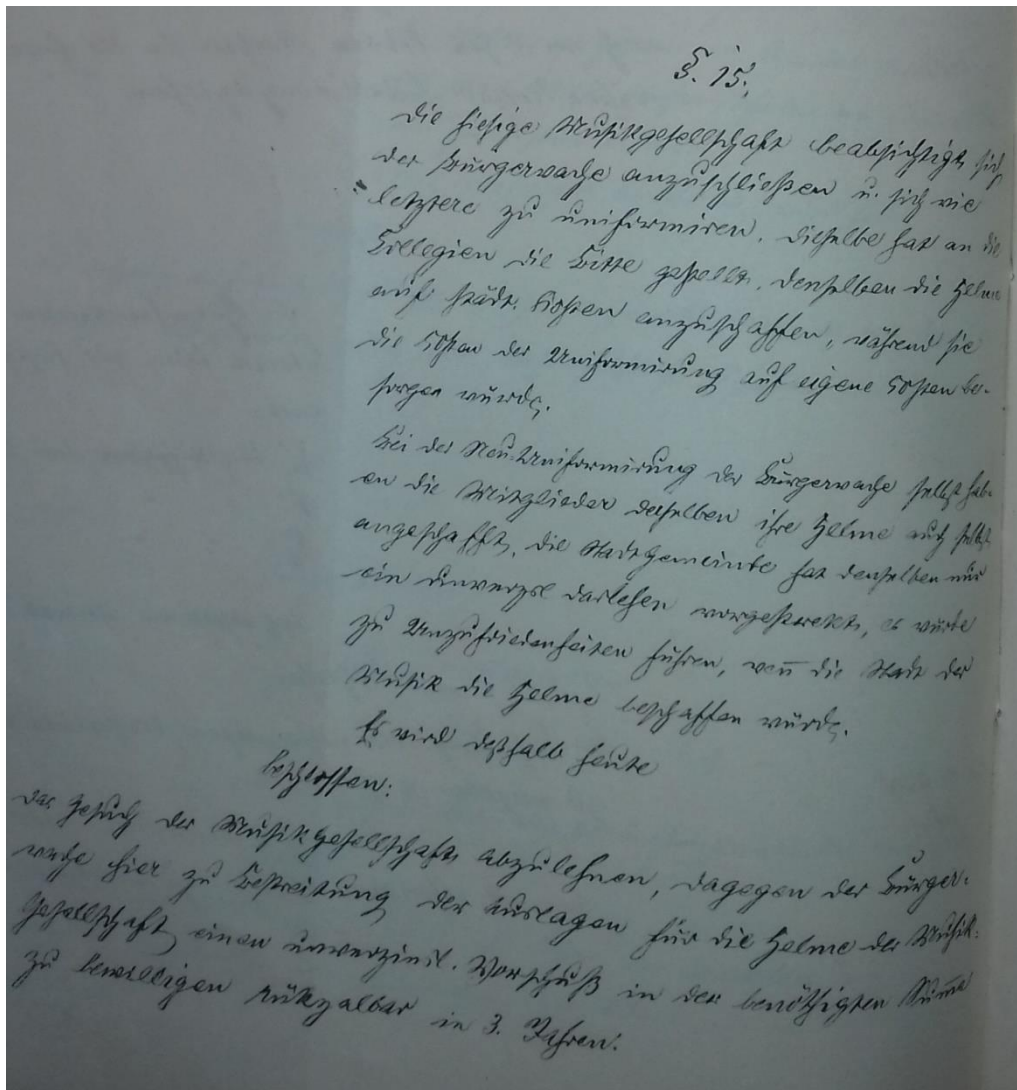 §. 15.
Die hiesige Musikgesellschaft beabsichtigt, sich
der Bürgerwache anzuschließen u. sich wie
letztere zu uniformiren. Dieselbe hat an die
Collegien die Bitte gestellt, denselben die Helme
auf städt. Kosten anzuschaffen, während sie
die Kosten der Uniformirung auf eigene Kosten be-
sorgen würde.
Bei der Neu-Uniformirung der Bürgerwache selbst hab-
en die Mitglieder derselben ihre Helme auch selbst
angeschafft, die Stadtgemeinde hat denselben nur
ein unverzsl Darlehen vorgestrekt, es würde
zu Unzufriedenheiten führen, wen̅ die Stadt der
Musik die Helme beschaffen würde.
Es wird deßhalb heute
beschlossen:
das Gesuch der Musikgesellschaft abzulehnen, dagegen der Bürger-
wache hier zu Bestreitung der Auslagen für die Helme der Musik-
gesellschaft einen unverzinsl. Vorschuß in der benöthigten Sum̅e
zu bewilligen rükzalbar in 3. Jahren.